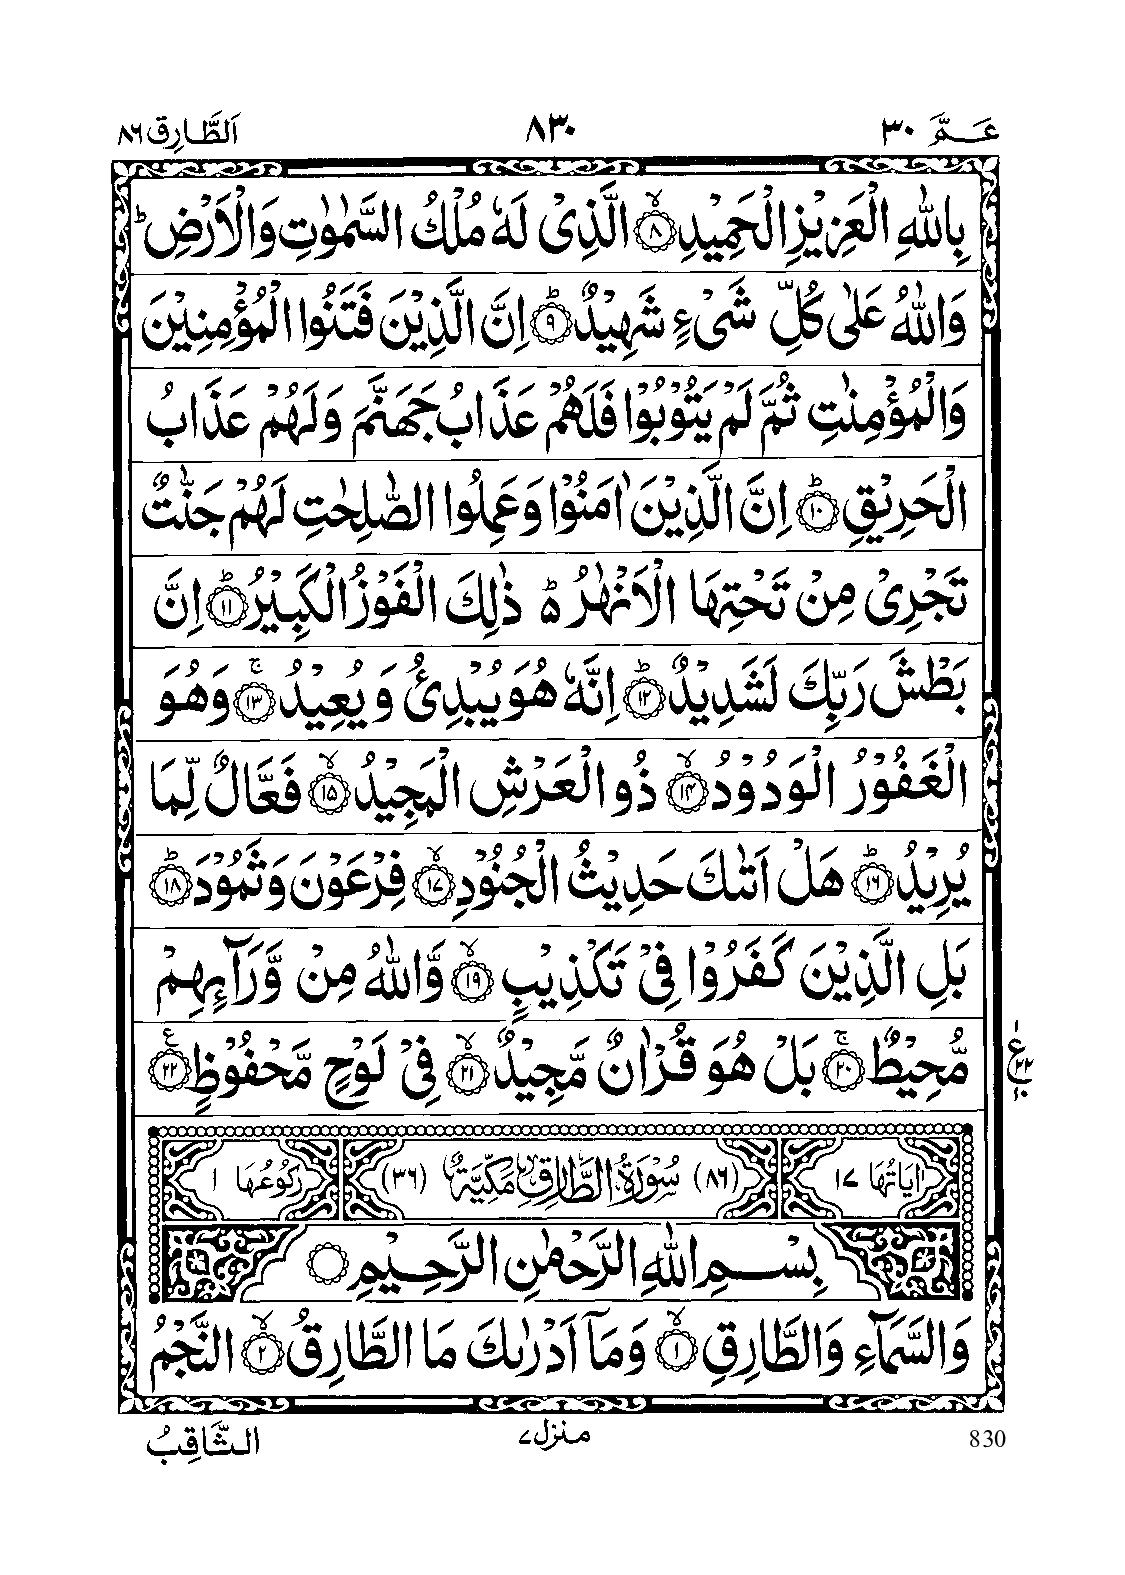 عَمَّ ٣٠ ٨٣٠ اَلطَّارِق ٨٦
بِاللّٰهِ الْعَزِیْزِ الْحَمِیْدِ ﴿۸﴾ۙ الَّذِیْ لَهٗ مُلْكُ السَّمٰوٰتِ وَالْاَرْضِ ؕ
وَاللّٰهُ عَلٰی كُلِّ شَیْءٍ شَهِیْدٌ ﴿۹﴾ؕ اِنَّ الَّذِیْنَ فَتَنُوا الْمُؤْمِنِیْنَ
وَالْمُؤْمِنٰتِ ثُمَّ لَمْ یَتُوْبُوْا فَلَهُمْ عَذَابُ جَهَنَّمَ وَلَهُمْ عَذَابُ
الْحَرِیْقِ ﴿۱۰﴾ؕ اِنَّ الَّذِیْنَ اٰمَنُوْا وَعَمِلُوا الصّٰلِحٰتِ لَهُمْ جَنّٰتٌ
تَجْرِیْ مِنْ تَحْتِهَا الْاَنْهٰرُ ۛؕ ذٰلِكَ الْفَوْزُ الْكَبِیْرُ ﴿۱۱﴾ؕ اِنَّ
بَطْشَ رَبِّكَ لَشَدِیْدٌ ﴿۱۲﴾ؕ اِنَّهٗ هُوَ یُبْدِئُ وَیُعِیْدُ ﴿۱۳﴾ۚ وَهُوَ
الْغَفُوْرُ الْوَدُوْدُ ﴿۱۴﴾ۙ ذُو الْعَرْشِ الْمَجِیْدُ ﴿۱۵﴾ۙ فَعَّالٌ لِّمَا
یُرِیْدُ ﴿۱۶﴾ؕ هَلْ اَتٰىكَ حَدِیْثُ الْجُنُوْدِ ﴿۱۷﴾ۙ فِرْعَوْنَ وَثَمُوْدَ ﴿۱۸﴾ؕ
بَلِ الَّذِیْنَ كَفَرُوْا فِیْ تَكْذِیْبٍ ﴿۱۹﴾ۙ وَّاللّٰهُ مِنْ وَّرَآىِٕهِمْ
مُّحِیْطٌ ﴿۲۰﴾ۚ بَلْ هُوَ قُرْاٰنٌ مَّجِیْدٌ ﴿۲۱﴾ۙ فِیْ لَوْحٍ مَّحْفُوْظٍ ﴿۲۲﴾ع
۱ ع ۲۲ ۱۰
اٰیَاتُهَا ۱۷ (۸۶) سُوْرَةُ الطَّارِقِ مَكِّیَّةٌ (۳۶) رُكُوْعُهَا ۱
بِسْمِ اللّٰهِ الرَّحْمٰنِ الرَّحِیْمِ
وَالسَّمَآءِ وَالطَّارِقِ ﴿۱﴾ۙ وَمَاۤ اَدْرٰىكَ مَا الطَّارِقُ ﴿۲﴾ۙ النَّجْمُ
830 منزل ۷ الثَّاقِبُ